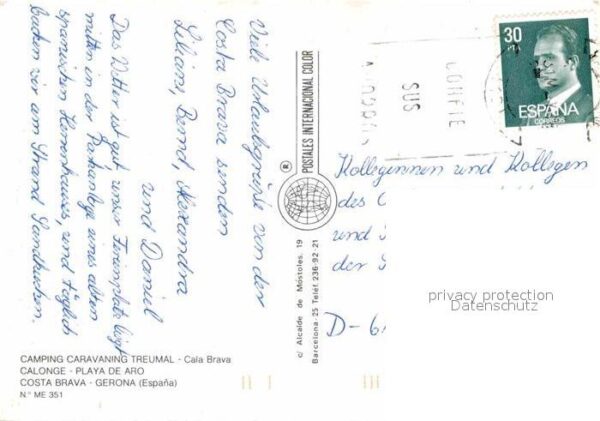 Viele Urlaubsgrüße von der
Costa Brava senden
Liliam, Bernd, Alexandra
und Daniel
Das Wetter ist gut, unser Ferienplatz liegt
mitten in der Parkanlage eines alten
spanischen Herrenhauses, und täglich
backen wir am Strand Sandkuchen.
CAMPING CARAVANING TREUMAL - Cala Brava
CALONGE - PLAYA DE ARO
COSTA BRAVA - GERONA (España)
N.° ME 351
POSTALES INTERNACIONAL COLOR
®
c/ Alcalde de Móstoles, 19
Barcelona-25 Teléf. 236-92-21
CONFIE
SUS
30
PTA
ESPAÑA
CORREOS
Kolleginnen und Kollegen
des
und
der
D-6
privacy protection
Datenschutz